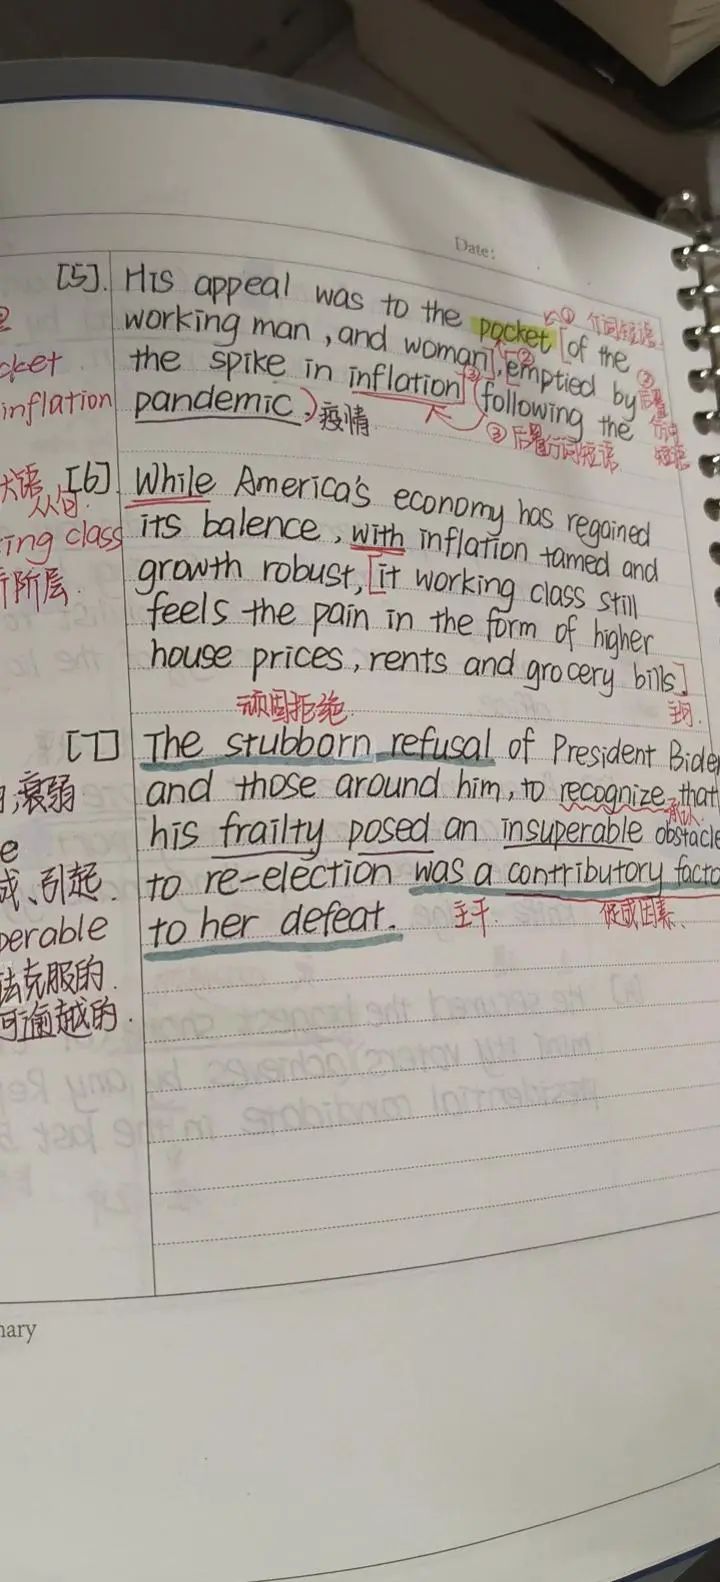 Date:
[5]. His appeal was to the pocket [of the
① 介词短语
working man, and woman], [emptied by
②
cket
the spike in inflation] (following the
② 后置分词短语
inflation
pandemic,) 疫情
③ 后置分词短语
大语
从句.
[6] While America's economy has regained
ing class
its balence, with inflation tamed and
阶层.
growth robust, [it working class still
feels the pain in the form of higher
house prices, rents and grocery bills]
顽固拒绝.
主句.
[7] The stubborn refusal of President Bide
衰弱
and those around him, to recognize that
承认.
e
his frailty posed an insuperable obstacle
成、引起.
to re-election was a contributory facto
perable
to her defeat.
主干.
促成因素.
法克服的.
可逾越的.
mary